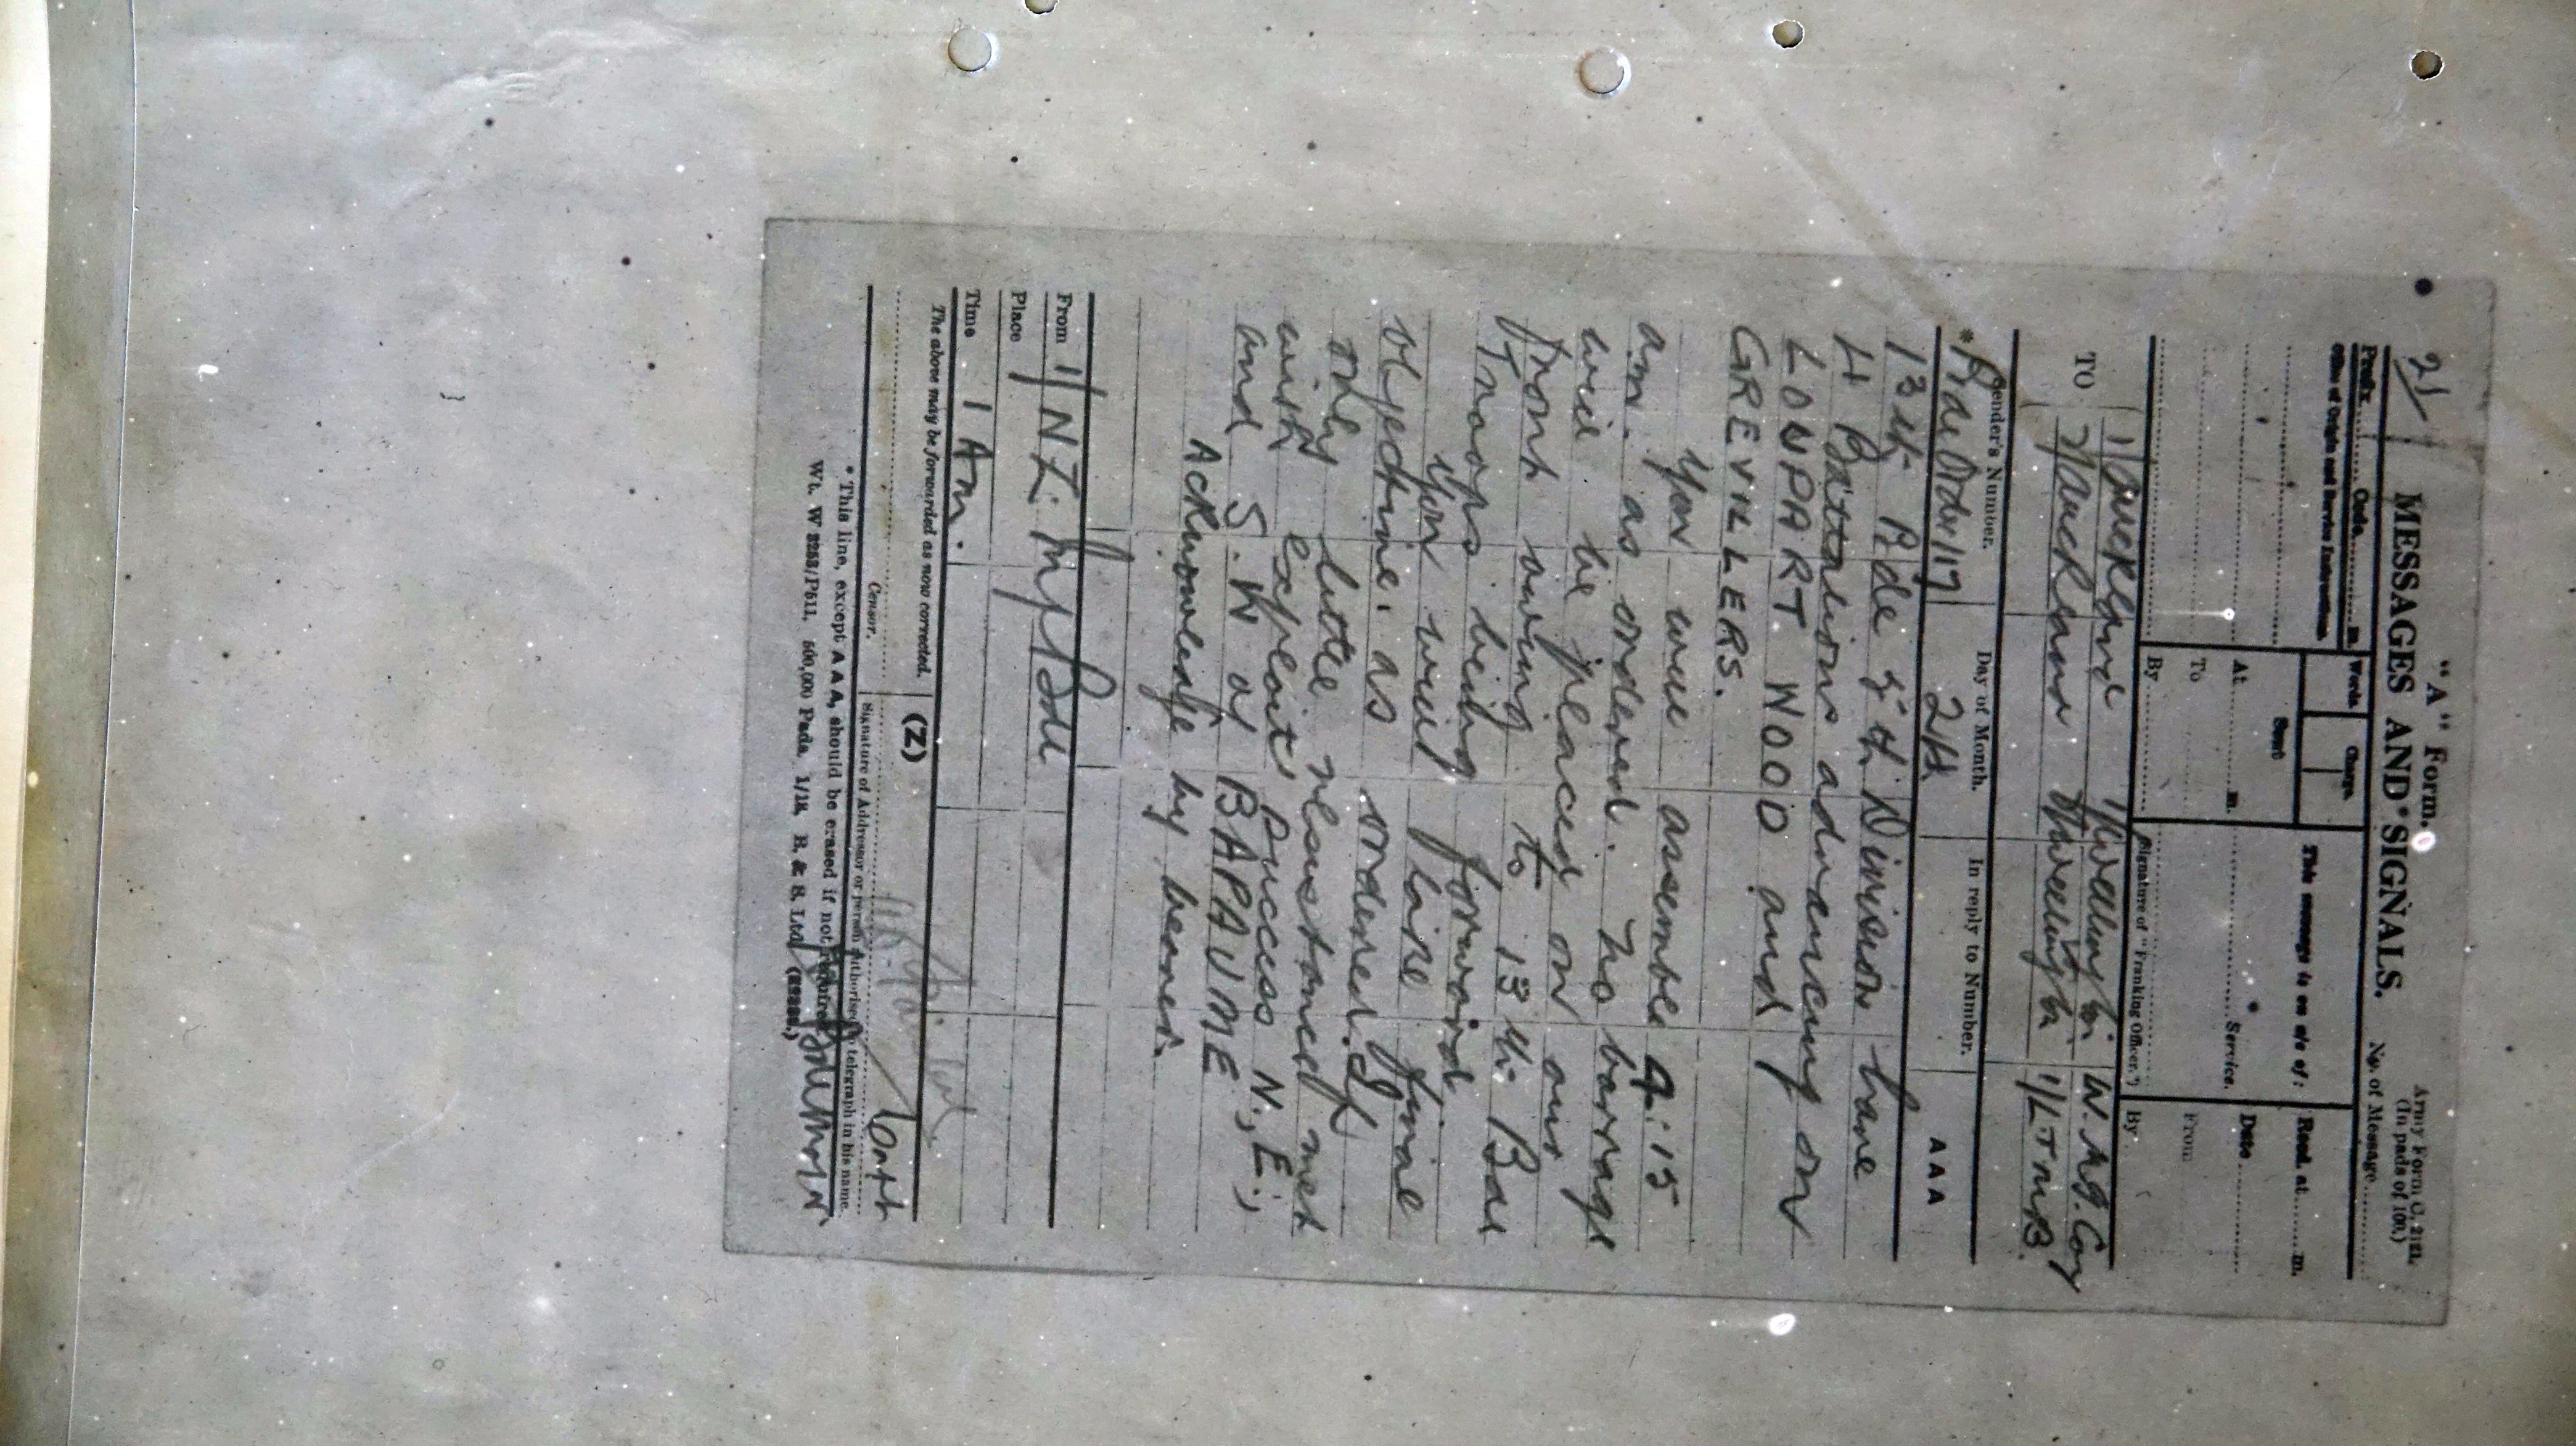 21/
"A" Form.
Army Form C. 2121.
(In pads of 100.)
MESSAGES AND SIGNALS.
No. of Message
Prefix Code m.
Words
Charge
This message is on a/c of:
Recd. at m.
Office of Origin and Service Instructions
Sent
Date
At m.
Service.
From
To
By
(Signature of "Franking Officer.")
By
TO
1/Auckland 1/Wellington W. M.G. Coy
2/Auckland 2/Wellington 1/L.T.M.B.
*Sender's Number.
Day of Month.
In reply to Number.
AAA
Bde Order/17
24
13th Bde 5th Division have
4 Battalions advancing on
LOUPART WOOD and
GREVILLERS.
You will assemble 4.15
am. as ordered. No barrage
will be placed on our
front owing to 13th Bde
Troops being forward
You will take final
objective. as ordered. If
only little resistance met
with exploit success N., E.,
and S.W of BAPAUME
Acknowledge by bearer.
From 1/ N.Z. Inf Bde
Place
Time 1 Am.
The above may be forwarded as now corrected.
(Z)
Censor.
Signature of Addressor or person authorised to telegraph in his name.
* This line, except AAA, should be erased if not required.
Wt. W 3253/P511. 500,000 Pads. 1/18. B. & S. Ltd.